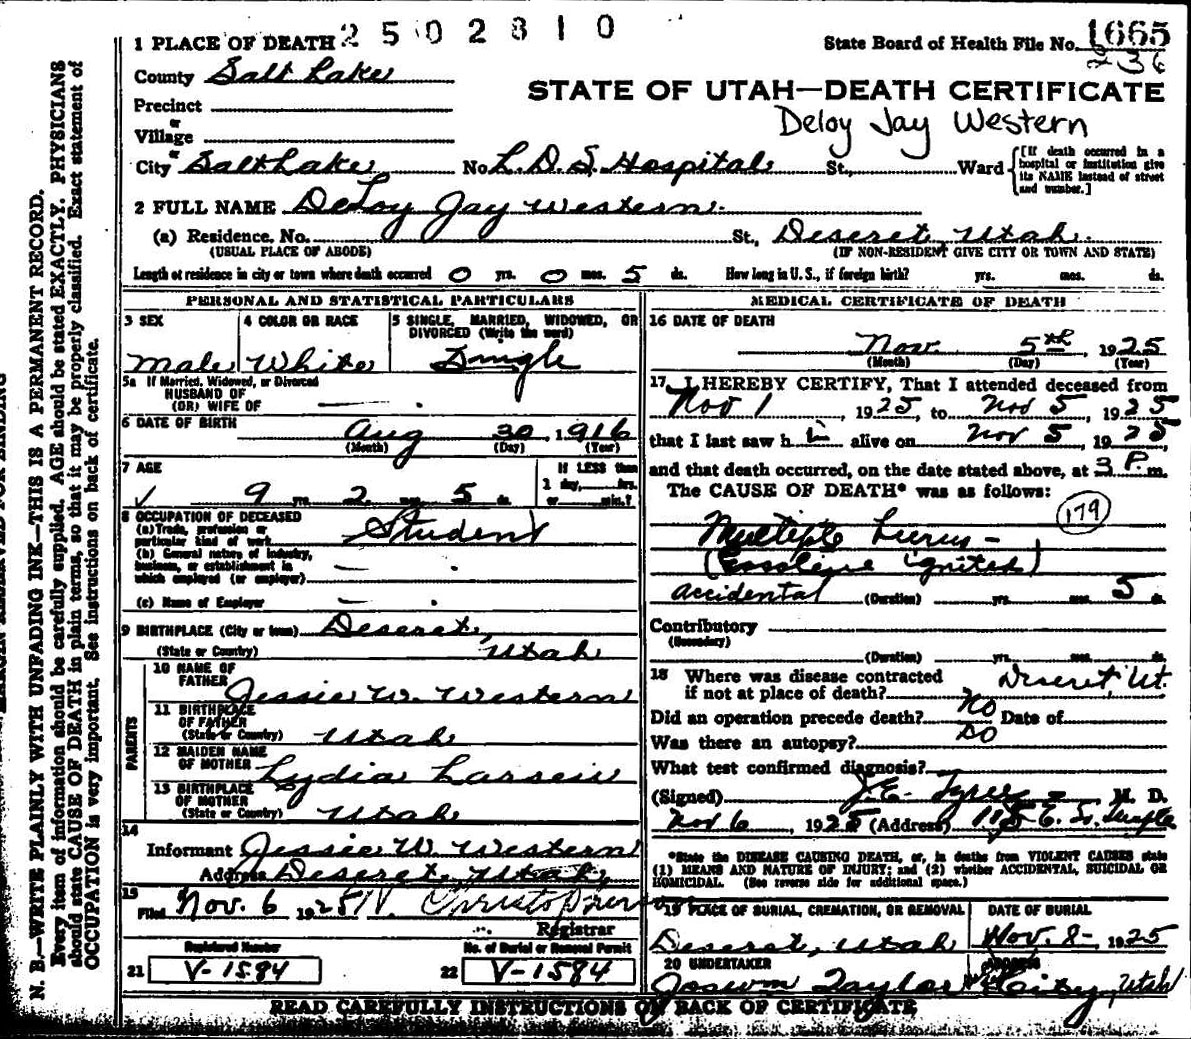 2502810
State Board of Health File No. 1665
236
1 PLACE OF DEATH
County Salt Lake
STATE OF UTAH—DEATH CERTIFICATE
Precinct
Deloy Jay Western
or
Village
or
City Salt Lake No. L.D.S. Hospital St., Ward [If death occurred in a hospital or institution give its NAME instead of street and number.]
2 FULL NAME DeLoy Jay Western
(a) Residence. No. St., Deseret, Utah.
(USUAL PLACE OF ABODE) (IF NON-RESIDENT GIVE CITY OR TOWN AND STATE)
Length of residence in city or town where death occurred 0 yrs. 0 mos. 5 ds. How long in U. S., if foreign birth? yrs. mos. ds.
PERSONAL AND STATISTICAL PARTICULARS
3 SEX 4 COLOR OR RACE 5 SINGLE, MARRIED, WIDOWED, OR DIVORCED (Write the word)
Male White Single
5a If Married, Widowed, or Divorced
HUSBAND OF
(OR) WIFE OF
6 DATE OF BIRTH Aug 30, 1916
(Month) (Day) (Year)
7 AGE If LESS than
9 yrs. 2 mos. 5 ds. 1 day, hrs.
or min.?
8 OCCUPATION OF DECEASED
(a) Trade, profession or
particular kind of work Student
(b) General nature of industry,
business, or establishment in
which employed (or employer)
(c) Name of Employer
9 BIRTHPLACE (City or town) Deseret,
(State or Country) Utah
PARENTS
10 NAME OF
FATHER Jessie W. Western
11 BIRTHPLACE
OF FATHER
(State or Country) Utah
12 MAIDEN NAME
OF MOTHER Lydia Larsen
13 BIRTHPLACE
OF MOTHER
(State or Country) Utah
14
Informant Jessie W. Western
Address Deseret, Utah,
15
Filed Nov. 6 1925
Registrar
Registered Number No. of Burial or Removal Permit
21 V-1584 22 V-1584
MEDICAL CERTIFICATE OF DEATH
16 DATE OF DEATH
Nov. 5th, 1925
(Month) (Day) (Year)
17 I HEREBY CERTIFY, That I attended deceased from
Nov 1, 1925, to Nov 5, 1925
that I last saw him alive on Nov 5, 1925
and that death occurred, on the date stated above, at 3 P. m.
The CAUSE OF DEATH* was as follows:
179
Multiple burns -
(Gasoline ignited)
accidental (Duration) yrs. mos. 5 ds.
Contributory
(Secondary)
(Duration) yrs. mos. ds.
18 Where was disease contracted
if not at place of death? Deseret, Ut.
Did an operation precede death? No Date of
Was there an autopsy? No
What test confirmed diagnosis?
(Signed) J. E. M. D.
Nov 6, 1925 (Address) E. So. Temple
*State the DISEASE CAUSING DEATH, or, in deaths from VIOLENT CAUSES state
(1) MEANS AND NATURE OF INJURY; and (2) whether ACCIDENTAL, SUICIDAL OR
HOMICIDAL. (See reverse side for additional space.)
19 PLACE OF BURIAL, CREMATION, OR REMOVAL DATE OF BURIAL
Deseret, Utah Nov. 8- 1925
20 UNDERTAKER ADDRESS
Taylor City, Utah
READ CAREFULLY INSTRUCTIONS ON BACK OF CERTIFICATE
N. B.—WRITE PLAINLY WITH UNFADING INK—THIS IS A PERMANENT RECORD.
Every item of information should be carefully supplied. AGE should be stated EXACTLY. PHYSICIANS
should state CAUSE OF DEATH in plain terms, so that it may be properly classified. Exact statement of
OCCUPATION is very important. See instructions on back of certificate.